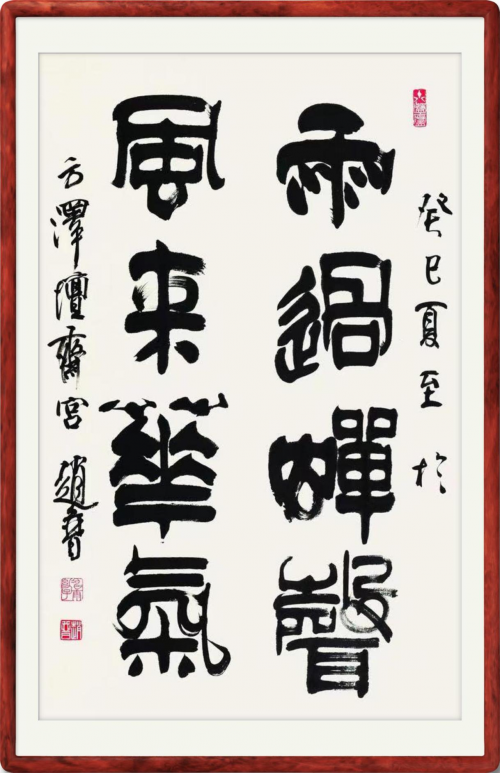 癸巳夏至於
雨過蟬聲
風来華氣
方澤壇齋宮 趙